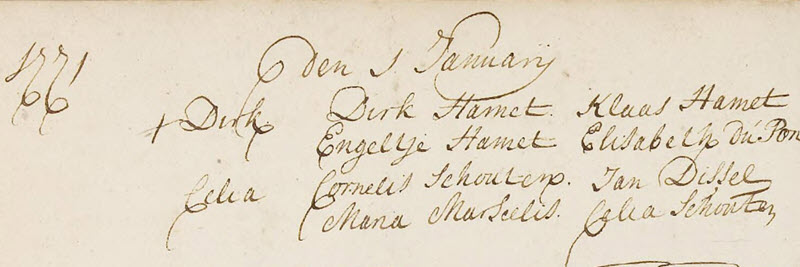 1771
den 1 January
+ Dirk. Dirk Hamet. Klaas Hamet
Engeltje Hamet Elisabeth du Pon
Celia Cornelis Schouten. Jan Dissel
Maria Marselis. Celia Schouten